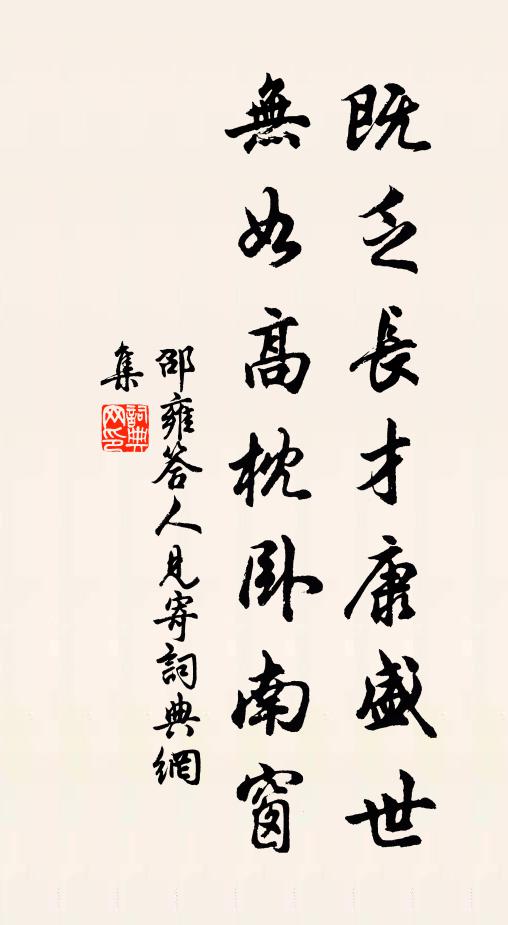 既乏長才康盛世
無如高枕卧南窗
邵雍答人見寄詞典網
集
詞典網印